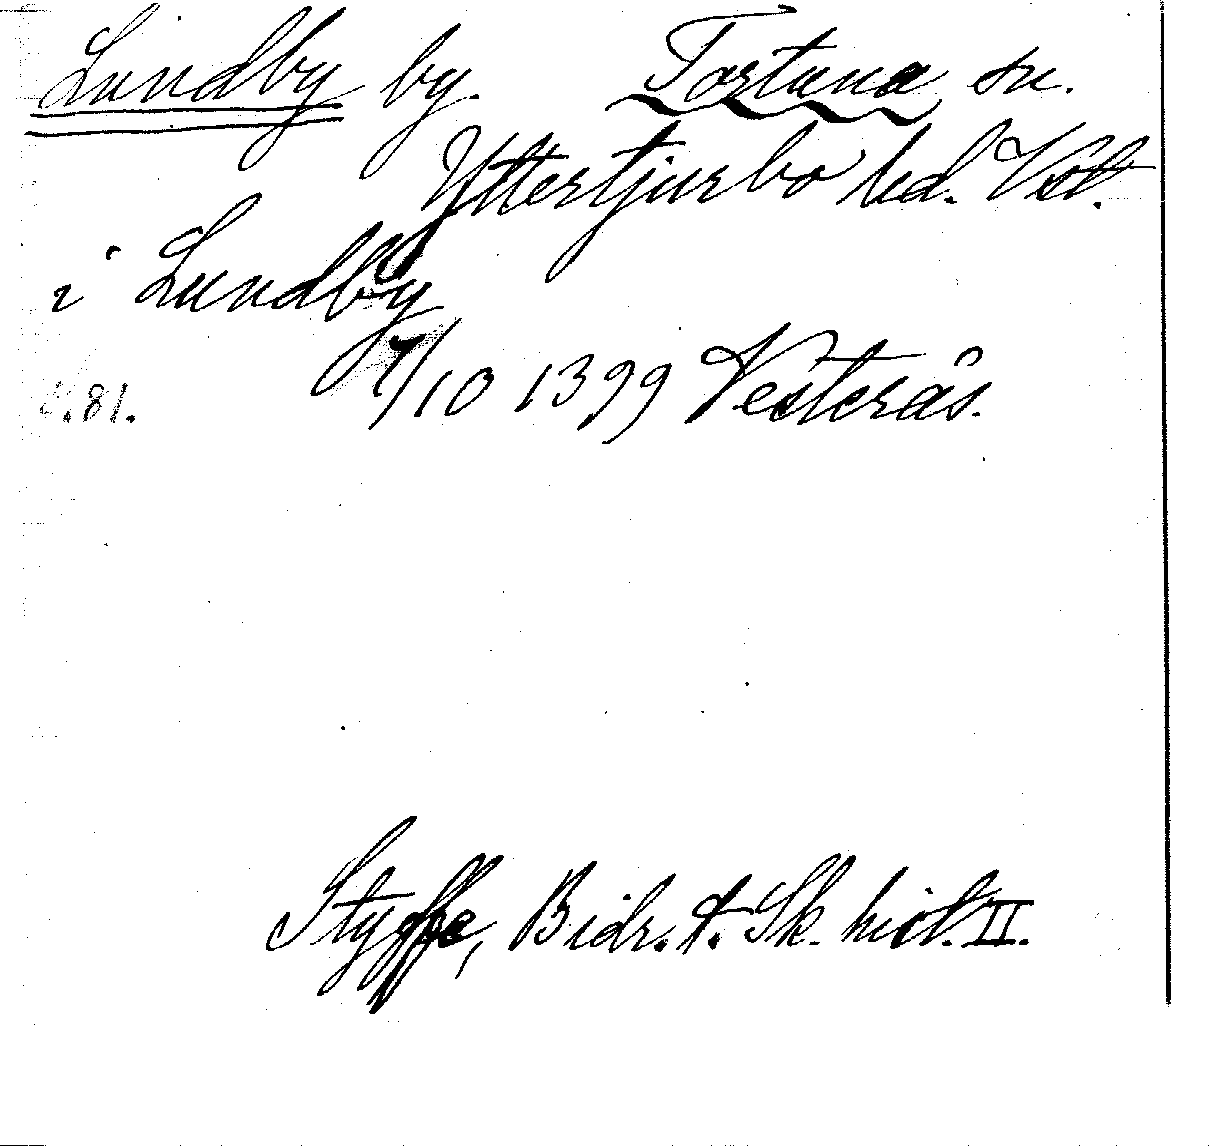 Lundby by. Tortuna sn.
Yttertjurbo hd. Vstl.
i Lundby
1/10 1399 Vesterås.
s. 81.
Styffe, Bidr. t. Sk. hist. II.